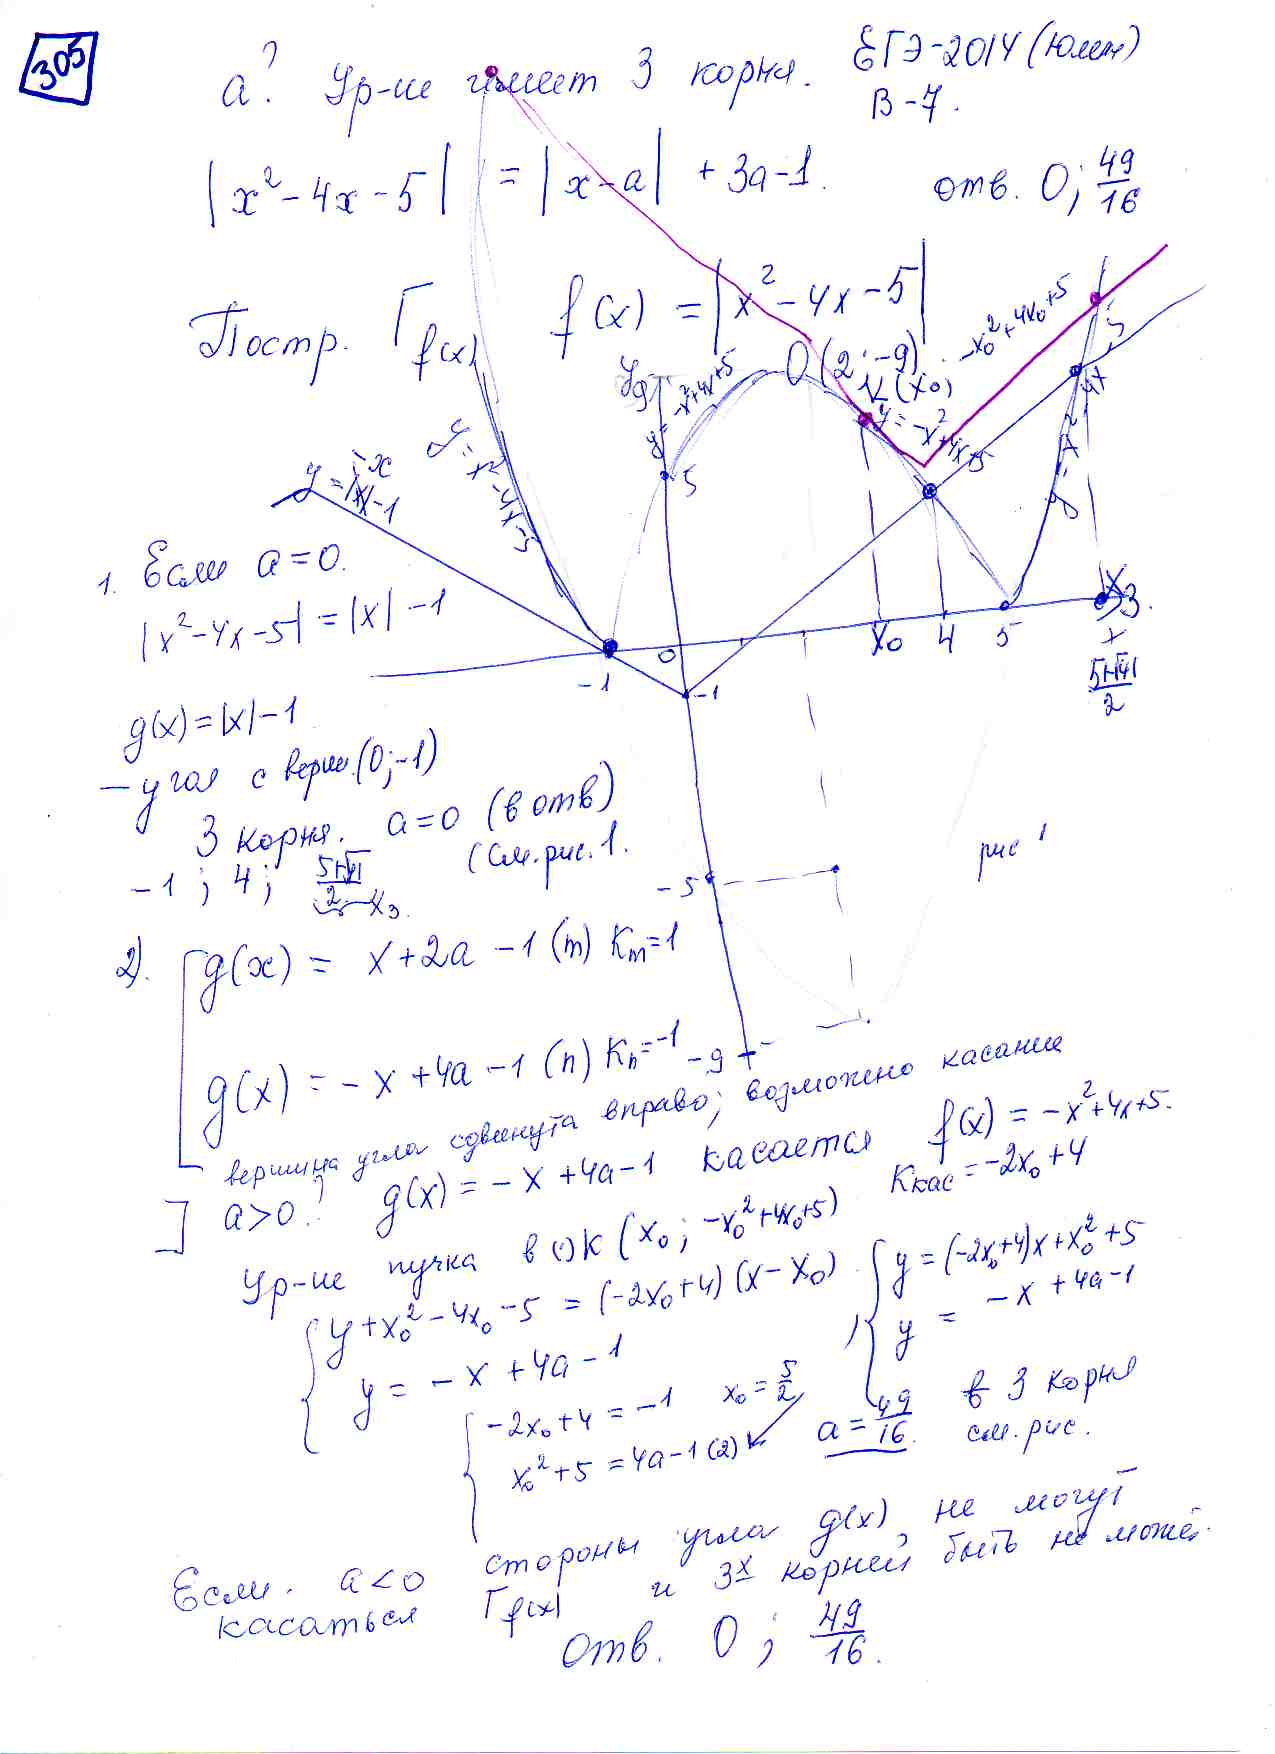 305
а? Ур-ие имеет 3 корня.
ЕГЭ-2014 (Июнь)
В-7.
|x²-4x-5| = |x-a| + 3a-1.
отв. 0; 49/16
Постр. Гf(x) f(x) = |x²-4x-5|
y = |x|-1
y = x²-4x-5
y = -x²+4x+5
(2; -9)
K(x₀)
-x₀²+4x₀+5
y = -x²+4x+5
y = x²-4x-5
y
9
5
-1
0
-1
x₀
4
5
x₃
x
5+√41/2
-5
-9
рис 1
1. Если a=0.
|x²-4x-5| = |x| -1
g(x) = |x|-1
- угол с верш. (0;-1)
3 корня. a=0 (в отв)
(см. рис. 1.
-1; 4; 5+√41/2 x₃.
2). g(x) = x+2a-1 (m) Km=1
g(x) = -x+4a-1 (n) Kn=-1
вершина угла сдвинута вправо; возможно касание
] a>0. ? g(x) = -x+4a-1 касается f(x) = -x²+4x+5.
Kкас = -2x₀+4
Ур-ие пучка в (·) K (x₀; -x₀²+4x₀+5)
y+x₀²-4x₀-5 = (-2x₀+4)(x-x₀)
y = -x+4a-1
y = (-2x₀+4)x+x₀²+5
y = -x+4a-1
-2x₀+4 = -1 x₀ = 5/2
x₀²+5 = 4a-1 (2)
a = 49/16. 3 корня
см. рис.
Если. a<0 стороны угла g(x) не могут
касаться Гf(x) и 3х корней быть не может.
Отв. 0; 49/16.